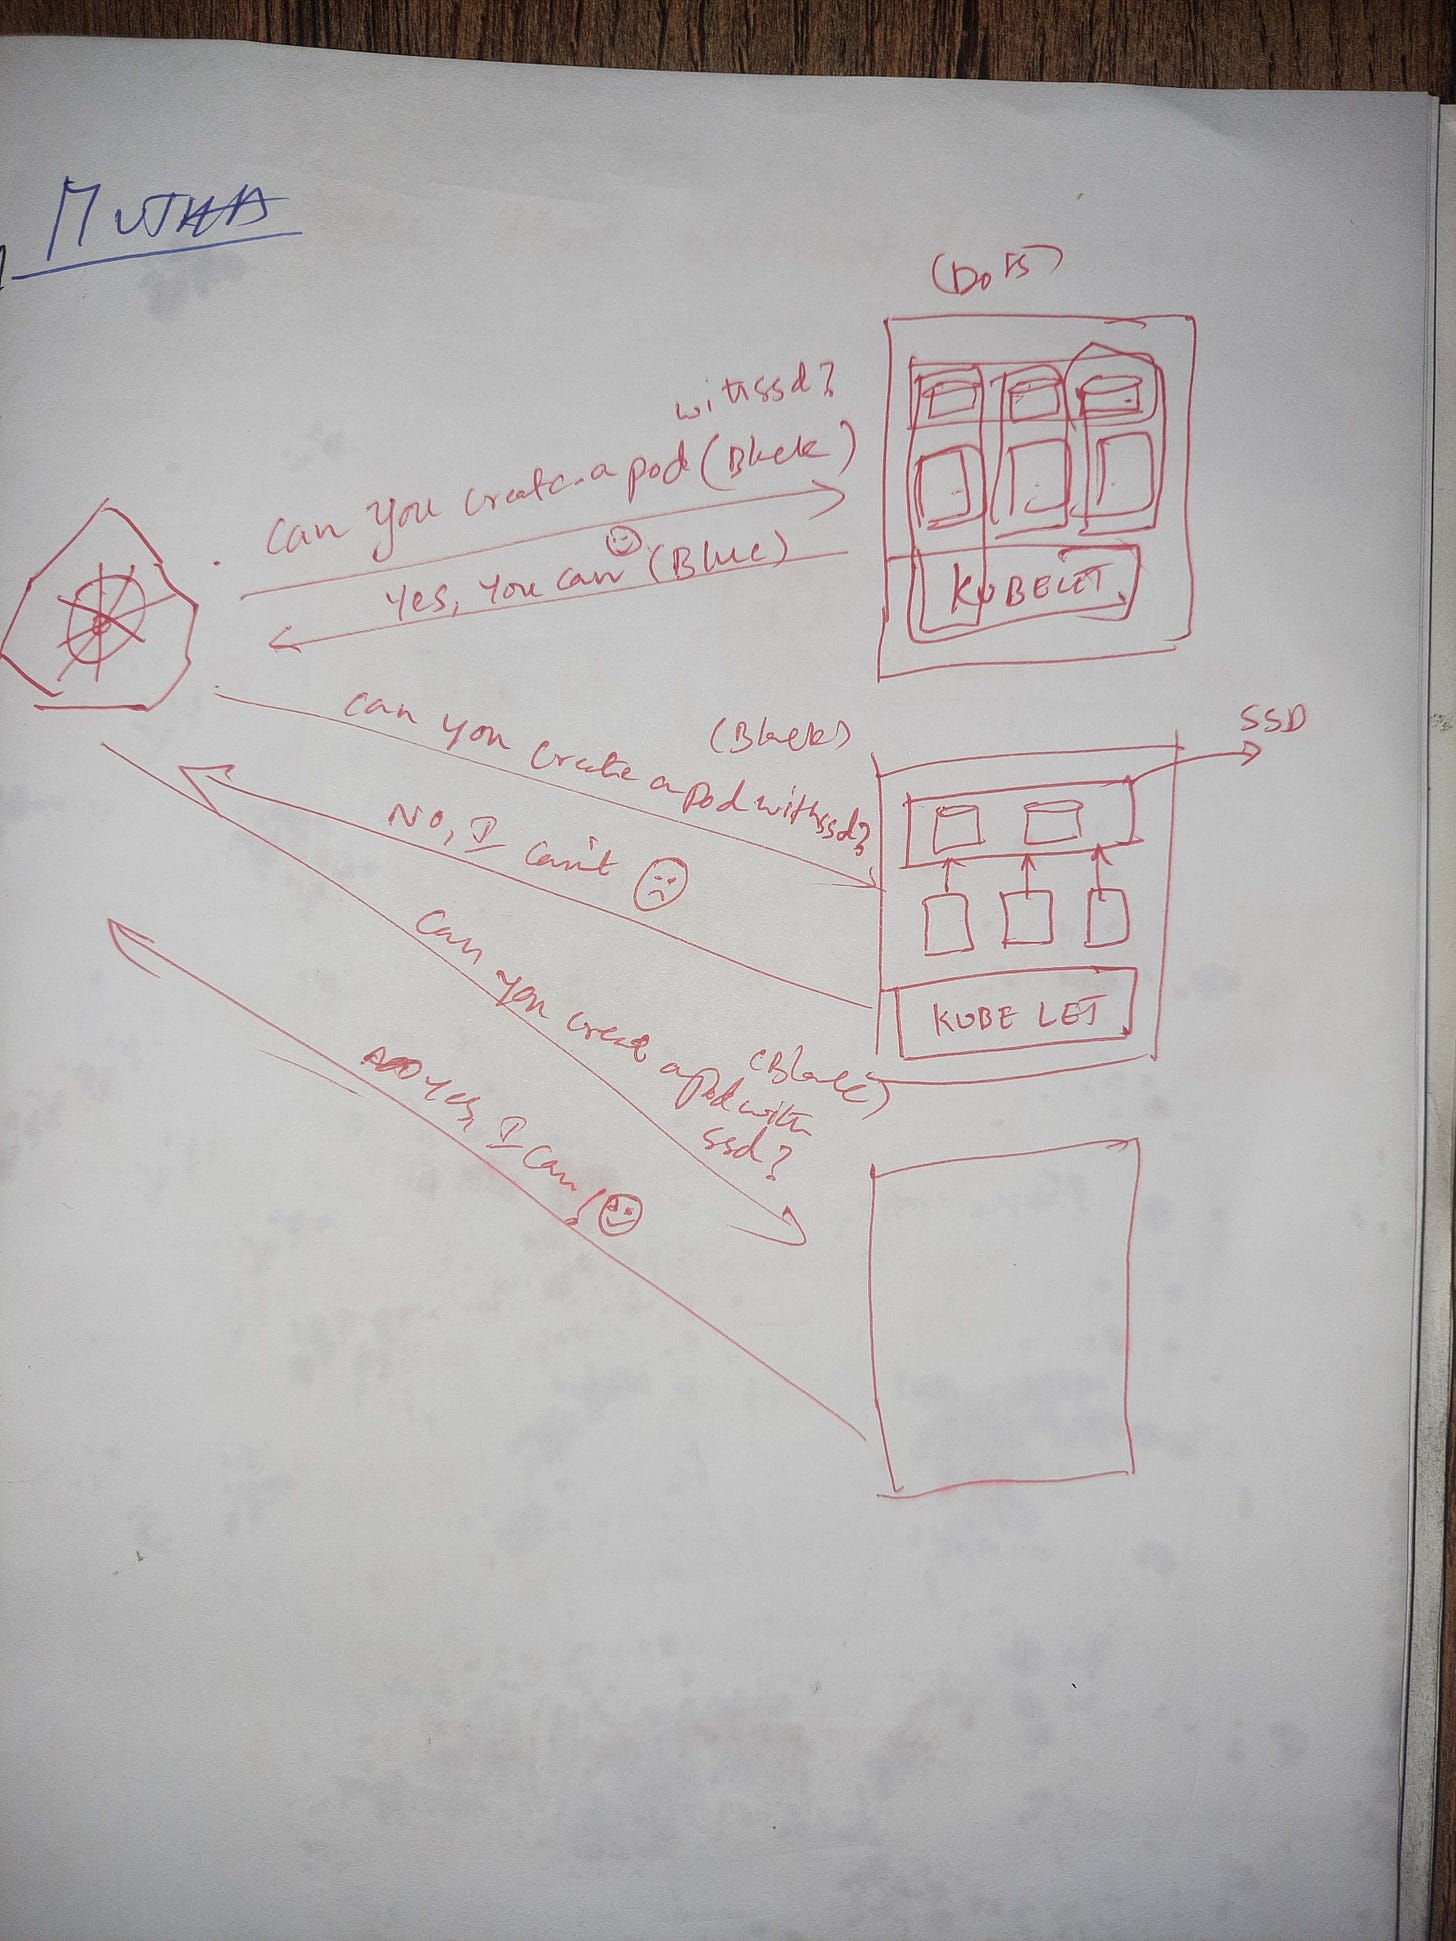 MUTHA
(DOTS)
with ssd?
Can you create a pod (Black)
Yes, you can (Blue)
KUBELET
SSD
(Black)
Can you create a pod with ssd?
No, I can't
KUBE LET
Can you create a pod with
(Black)
ssd?
Yes, I can!